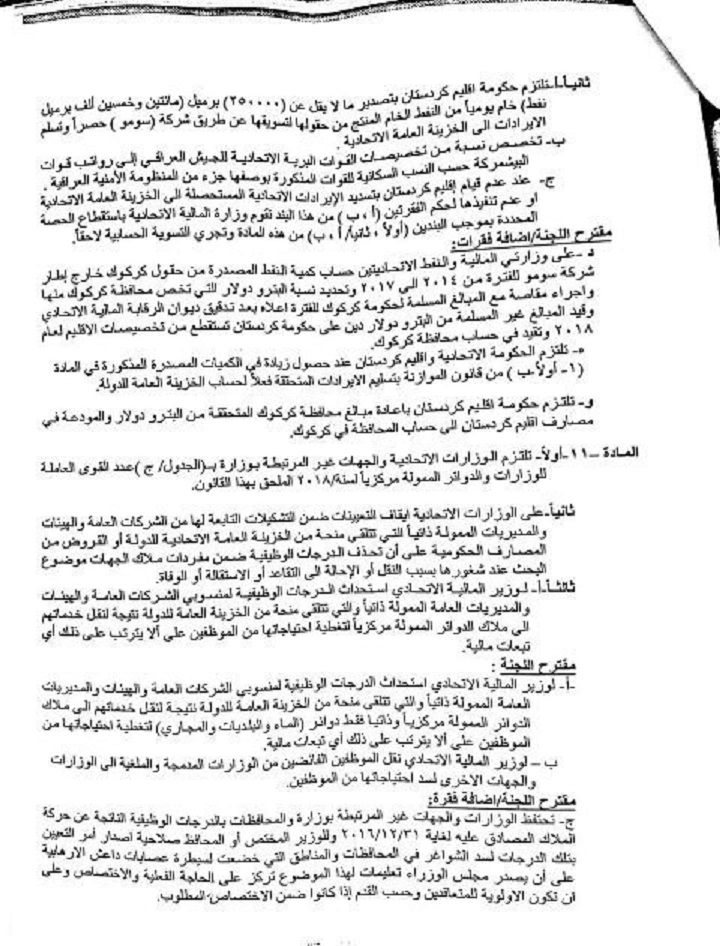 ثانياً-أ-تلتزم حكومة اقليم كردستان بتصدير ما لا يقل عن (٢٥٠٠٠٠) برميل (مائتين وخمسين ألف برميل
نفط) خام يومياً من النفط الخام المنتج من حقولها لتسويقها عن طريق شركة (سومو) حصراً وتسلم
الايرادات الى الخزينة العامة الاتحادية .
ب- تخصص نسبة من تخصيصات القوات البرية الاتحادية للجيش العراقي إلى رواتب قوات
البيشمركة حسب النسب السكانية للقوات المذكورة بوصفها جزء من المنظومة الأمنية العراقية .
ج- عند عدم قيام إقليم كردستان بتسديد الإيرادات الاتحادية المستحصلة الى الخزينة العامة الاتحادية
او عدم تنفيذها لحكم الفقرتين (أ ، ب) من هذا البند تقوم وزارة المالية الاتحادية باستقطاع الحصة
المحددة بموجب البندين (أولاً ، ثانياً/ أ ، ب) من هذه المادة وتجري التسوية الحسابية لاحقاً.
مقترح اللجنة/اضافة فقرات:
د -على وزارتي المالية والنفط الاتحاديتين حساب كمية النفط المصدرة من حقول كركوك خارج إطار
شركة سومو للفترة من ٢٠١٤ الى ٢٠١٧ وتحديد نسبة البترو دولار للتي تخص محافظة كركوك منها
واجراء مقاصة مع المبالغ المسلمة لحكومة كركوك للفترة اعلاه بعد تدقيق ديوان الرقابة المالية الاتحادي
وقيد المبالغ غير المسلمة من البترو دولار دين على حكومة كردستان تستقطع من تخصيصات الاقليم لعام
٢٠١٨ وتقيد في حساب محافظة كركوك.
ه- تلتزم الحكومة الاتحادية واقليم كردستان عند حصول زيادة في الكميات المصدرة المذكورة في المادة
(١- أولاً-ب ) من قانون الموازنة بتسليم الايرادات المتحققة فعلاً لحساب الخزينة العامة للدولة.
و- تلتزم حكومة اقليم كردستان باعادة مبالغ محافظة كركوك المتحققة من البترو دولار والمودعة في
مصارف اقليم كردستان الى حساب المحافظة في كركوك.
المادة – ١١-أولاً- تلتزم الوزارات الاتحادية والجهات غير المرتبطة بوزارة بـ(الجدول/ ج )عدد القوى العاملة
للوزارات والدوائر الممولة مركزياً لسنة/٢٠١٨ الملحق بهذا القانون.
ثانياً-على الوزارات الاتحادية ايقاف التعيينات ضمن التشكيلات التابعة لها من الشركات العامة والهيئات
والمديريات الممولة ذاتياً التي تتلقى منحة من الخزينة العامة الاتحادية للدولة أو القروض من
المصارف الحكومية على أن تحذف الدرجات الوظيفية ضمن مفردات ملاك الجهات موضوع
البحث عند شغورها بسبب النقل أو الإحالة الى التقاعد أو الاستقالة أو الوفاة.
ثالثاً-أ- لوزير المالية الاتحادي استحداث الدرجات الوظيفية لمنسوبي الشركات العامة والهيئات
والمديريات العامة الممولة ذاتياً والتي تتلقى منحة من الخزينة العامة للدولة نتيجة لنقل خدماتهم
الى ملاك الدوائر الممولة مركزياً لتغطية احتياجاتها من الموظفين على ألا يترتب على ذلك أي
تبعات مالية.
مقترح اللجنة :
-أ- لوزير المالية الاتحادي استحداث الدرجات الوظيفية لمنسوبي الشركات العامة والهيئات والمديريات
العامة الممولة ذاتياً والتي تتلقى منحة من الخزينة العامة للدولة نتيجة لنقل خدماتهم الى ملاك
الدوائر الممولة مركزياً وذاتياً فقط دوائر (الماء والبلديات والمجاري) لتغطية احتياجاتها من
الموظفين على ألا يترتب على ذلك أي تبعات مالية.
ب – لوزير المالية الاتحادي نقل الموظفين الفائضين من الوزارات المدمجة والملغية الى الوزارات
والجهات الاخرى لسد احتياجاتها من الموظفين.
مقترح اللجنة/اضافة فقرة:
ج- تحتفظ الوزارات والجهات غير المرتبطة بوزارة والمحافظات بالدرجات الوظيفية الناتجة عن حركة
الملاك المصادق عليه لغاية ٢٠١٦/١٢/٣١ وللوزير المختص أو المحافظ صلاحية اصدار أمر التعيين
بتلك الدرجات لسد الشواغر في المحافظات والمناطق التي خضعت لسيطرة عصابات داعش الارهابية
على أن يصدر مجلس الوزراء تعليمات لهذا الموضوع تركز على الحاجة الفعلية والاختصاص وعلى
ان تكون الاولوية للمتعاقدين وحسب القدم إذا كانوا ضمن الاختصاص المطلوب.